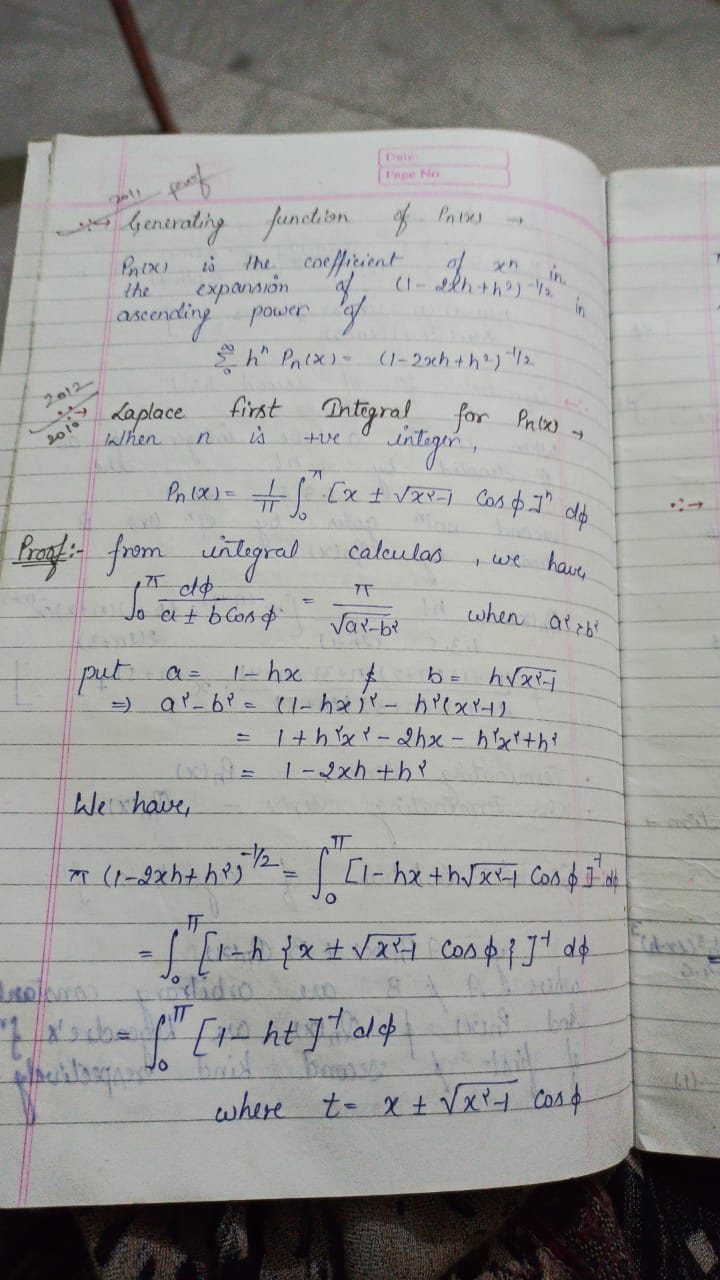 Date:
Page No.
2011 proof
∴→ Generating function of Pn(x) →
Pn(x) is the coefficient of xⁿ in
the expansion of (1-2xh+h²)^-1/2 in
ascending power of
∞Σ0 hⁿ Pn(x) = (1-2xh+h²)^-1/2
2012
∴→ Laplace first Integral for Pn(x) →
2010
When n is +ve integer,
Pn(x) = 1/π ∫₀^π [x ± √x²-1 Cos ϕ]ⁿ dϕ
Proof:- from integral calculas, we have,
∫₀^π dϕ/(a ± b Cos ϕ) = π/√a²-b² when a²>b²
put a = 1-hx & b = h√x²-1
⇒ a²-b² = (1-hx)² - h²(x²-1)
= 1+h²x²-2hx-h²x²+h²
= 1-2xh+h²
We have,
π (1-2xh+h²)^-1/2 = ∫₀^π [1-hx+h√x²-1 Cos ϕ]^-1 dϕ
= ∫₀^π [1-h {x ± √x²-1 cos ϕ}]^-1 dϕ
= ∫₀^π [1-ht]^-1 dϕ
where t = x ± √x²-1 Cos ϕ
∴→